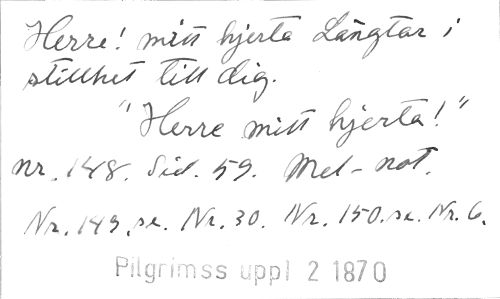 Herre! mitt hjerta Längtar i
stillhet till dig.
"Herre mitt hjerta!"
nr. 148. Sid. 59. Mel-not.
Nr. 149. se. Nr. 30. Nr. 150. se. Nr. 6.
Pilgrimss uppl 2 1870